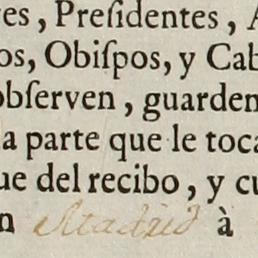 es, Preſidentes, A
os, Obiſpos, y Cab
obſerven, guarden
a parte que le toca
ue del recibo, y cu
n Madrid à